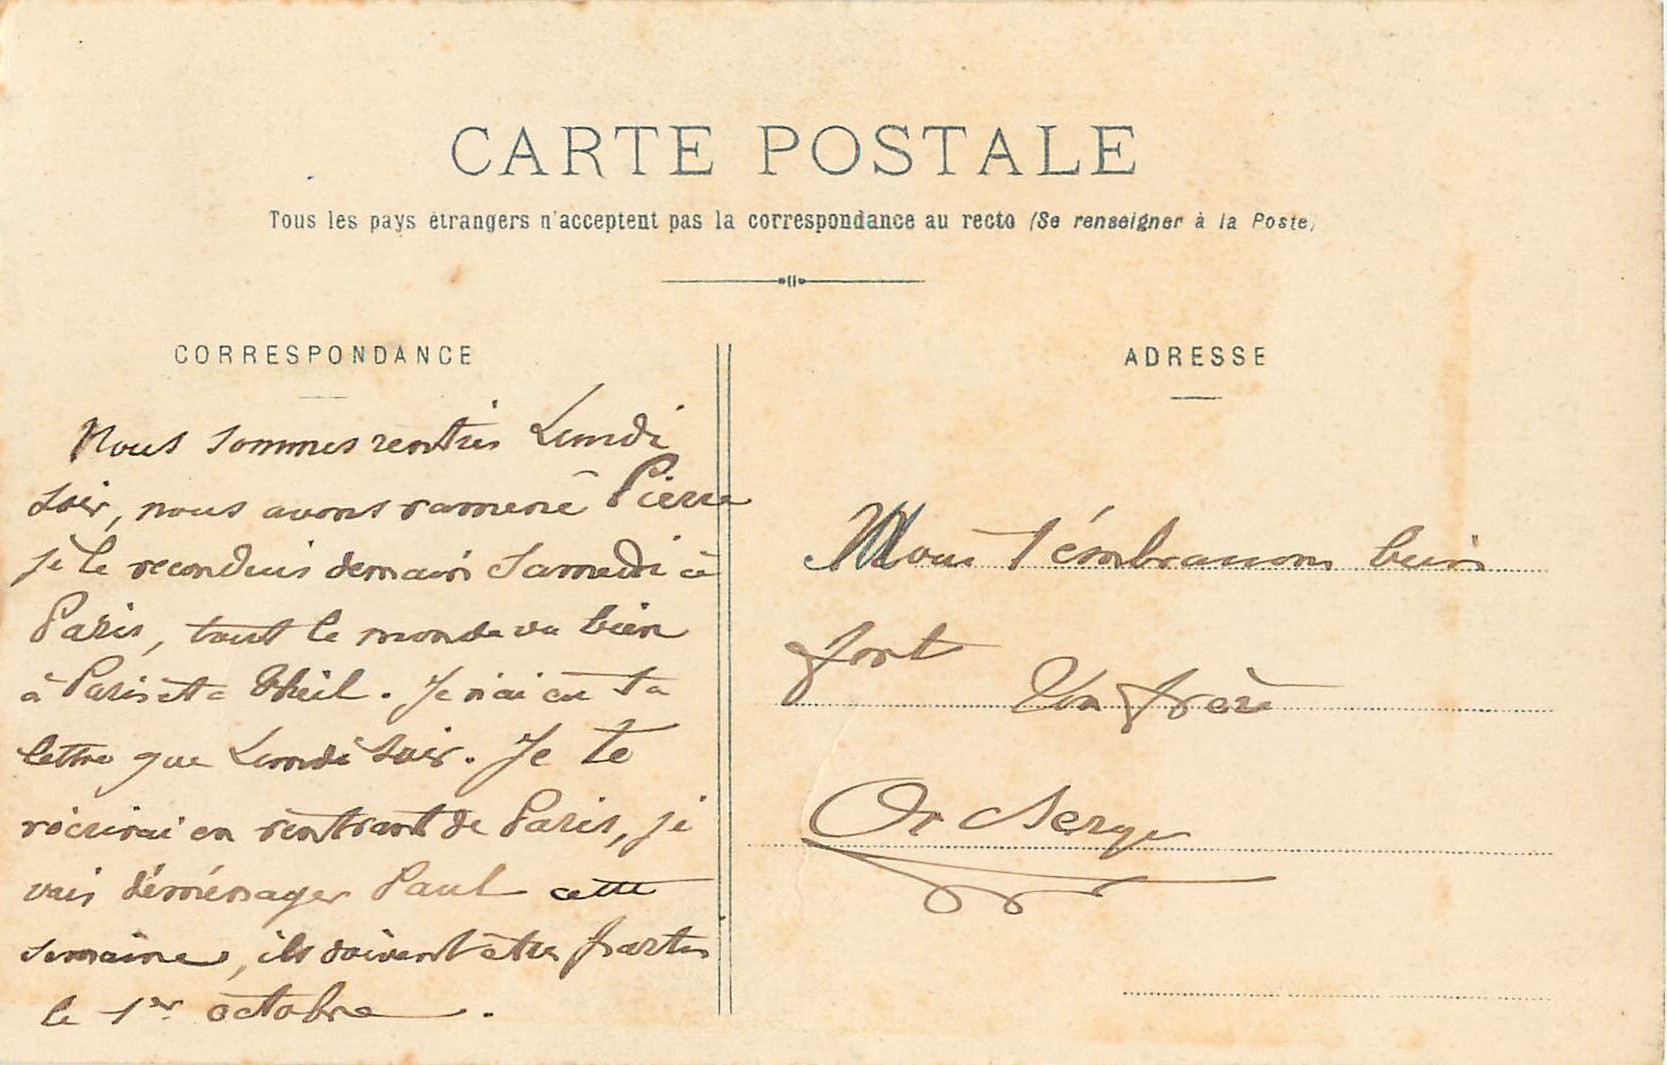 CARTE POSTALE
Tous les pays étrangers n'acceptent pas la correspondance au recto (Se renseigner à la Poste)
CORRESPONDANCE
ADRESSE
Nous sommes rentrés Lundi
soir, nous avons ramené Pierre
je le reconduis demain Samedi à
Paris, tout le monde va bien
à Paris et à Theil. Je n'ai eu ta
lettre que Lundi soir. Je te
récrirai en rentrant de Paris, je
vais déménager Paul cette
semaine, ils doivent être partis
le 1er octobre.
Nous t'embrassons bien
fort
Ton frère
Serge